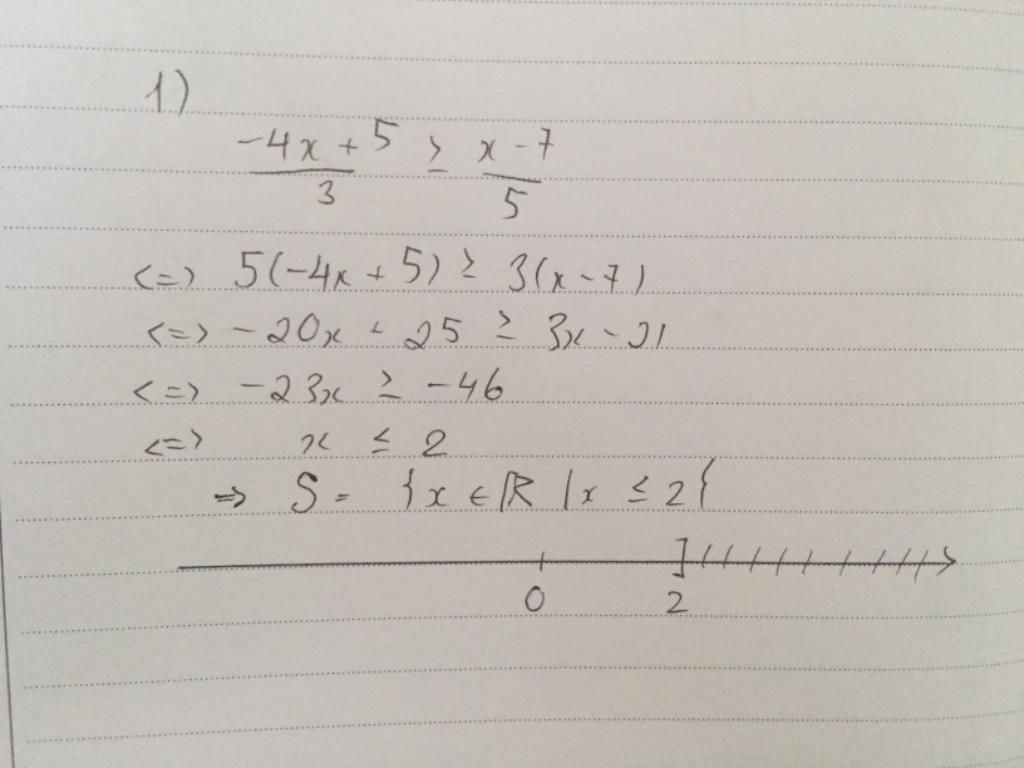 1)
-4x + 5 ≥ x - 7
3 5
<=> 5(-4x + 5) ≥ 3(x - 7)
<=> -20x + 25 ≥ 3x - 21
<=> -23x ≥ -46
<=> x ≤ 2
=> S = {x ∈ ℝ | x ≤ 2}
0 ] 2